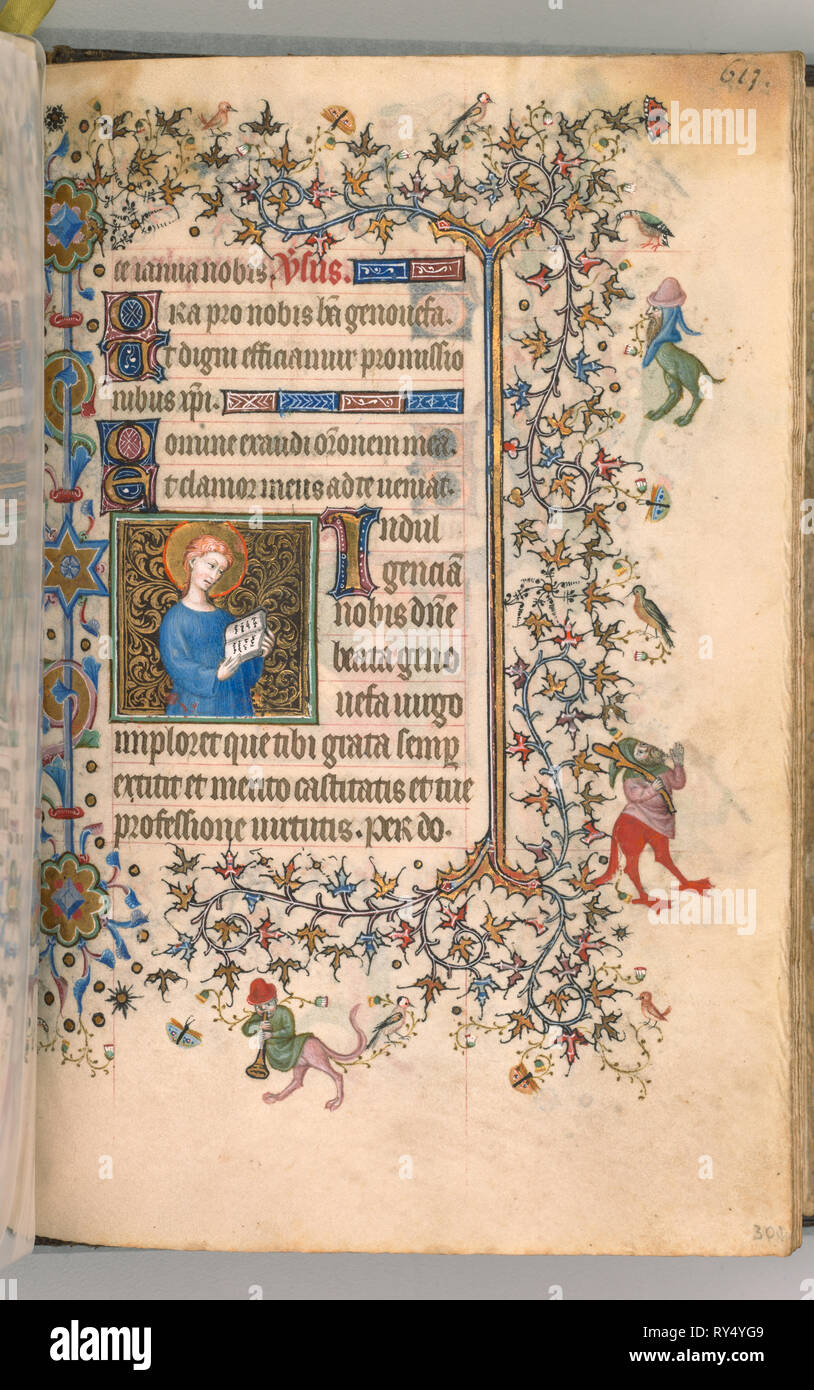 617.
te ianua nobis. Vsus.
Ora pro nobis bā genouefa.
Et digni efficiamur promissio
nibus xp̄i.
Domine exaudi orōnem meā.
Et clamor meus ad te ueniat.
Indul
genciā
nobis dn̄e
beata geno
uefa uirgo
imploret que tibi grata semꝑ
extitit et merito castitatis et tue
professione uirtutis. PER do.
alamy
alamy
Image ID: RY4YG9
www.alamy.com